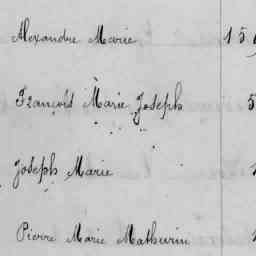 Alexandre Marie 15
François Marie Joseph 5
Joseph Marie
Pierre Marie Mathurin